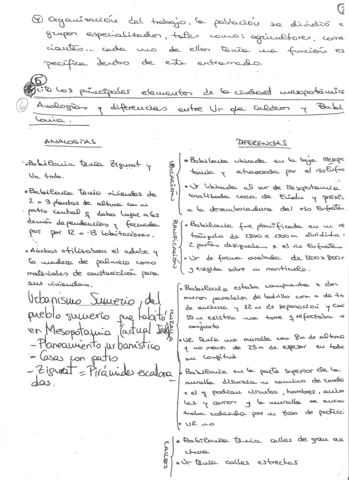 ④ Organización del trabajo, la población se dividió en
grupos especializados, tales como: agricultores, comer
ciantes... cada uno de ellos tenía una función es
pecífica dentro de este entramado.
⑤ los principales elementos de la ciudad mesopotámica
⑥ Analogías y diferencias entre Ur de Caldea y Babi
lonia.
ANALOGÍAS
• Babilonia tenía Zigurat y
Ur tmb.
• Babilonia tenía viviendas de
2 o 3 plantas de altura con un
patio central q daba luz a las
demás dependencias y formada
por 12 - 13 habitaciones.
• Ambas utilizaban el adobe y
la madera de palmera como
materiales de construcción para
sus viviendas.
Urbanismo Sumerio, del
pueblo sumerio que habitó
en Mesopotamia (actual Irak)
- Planeamiento urbanístico
- Casas con patio
- Zigurat = Pirámides escalona
das.
DIFERENCIAS
UBICACIÓN
• Babilonia ubicada en la baja Mesopo
tamia y atravesada por el río Éufra
• Ur ubicada al sur de Mesopotamia
localizada cerca de Eridu y próxi
a la desembocadura del río Éufrat
PLANIFICACIÓN
• Babilonia fue planificada en un re
ctángulo de 2500 x 1500 m dividida
2 partes desiguales x el río Éufrate
• Ur de forma ovalada de 1200 x 800
y erigida sobre un montículo.
MURALLA
• Babilonia estaba compuesta x dos
muros paralelos de ladrillo con + de 7 m
de anchura y 12 m de separación y cada
50 m existía una torre q reforzaba el
conjunto
• Ur tenía una muralla con 8 m de altura
y no menos de 23 m de espesor en toda
su longitud
• Babilonia en la parte superior de la
muralla discurría un camino de ronda
x el q podían circular, hombres, anim
les y carros y la muralla se encon
traba rodeada por un foso de protecci
• Ur no
CALLES
• Babilonia tenía calles de gran an
chura
• Ur tenía calles estrechas